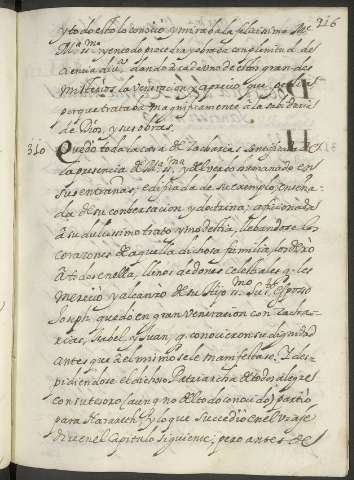 316
y todo esto lo conoció y miraba la felicissima Me
Ma ssma y en todo procedia y obraba con plenitud de
ciencia diua, dando a cada vno de estos grandes
misterios la veneracion y aprecio que pedian
porque trataba magnificamente a la sabiduria
de Dios, y sus obras.
310 Quedó toda la casa de Zacharias santificada con
la presencia de Ma ssma y del verbo humanado en
sus entrañas; edificada de su exemplo; enseña-
da de su conbersacion y doctrina; aficionada
a su dulcissimo trato y modestia, llebandose los
corazones de aquella dichosa familia, los dexó
a todos en ella, llenos de dones celestiales q les
mereció y alcanzó de su Hijo ssmo. Su sto Esposo
Joseph quedó en gran veneracion con Zacha-
rias, Isabel, y Juan, q conocieron su dignidad
antes que a el mismo se le manifestase. Y des-
pidiendose el dichoso Patriarcha de todos alegre
con su tesoro (aunq no de el todo conocido) partió
para Nazareth; y lo que succedió en el viaje
diré en el capitulo siguiente; pero antes de